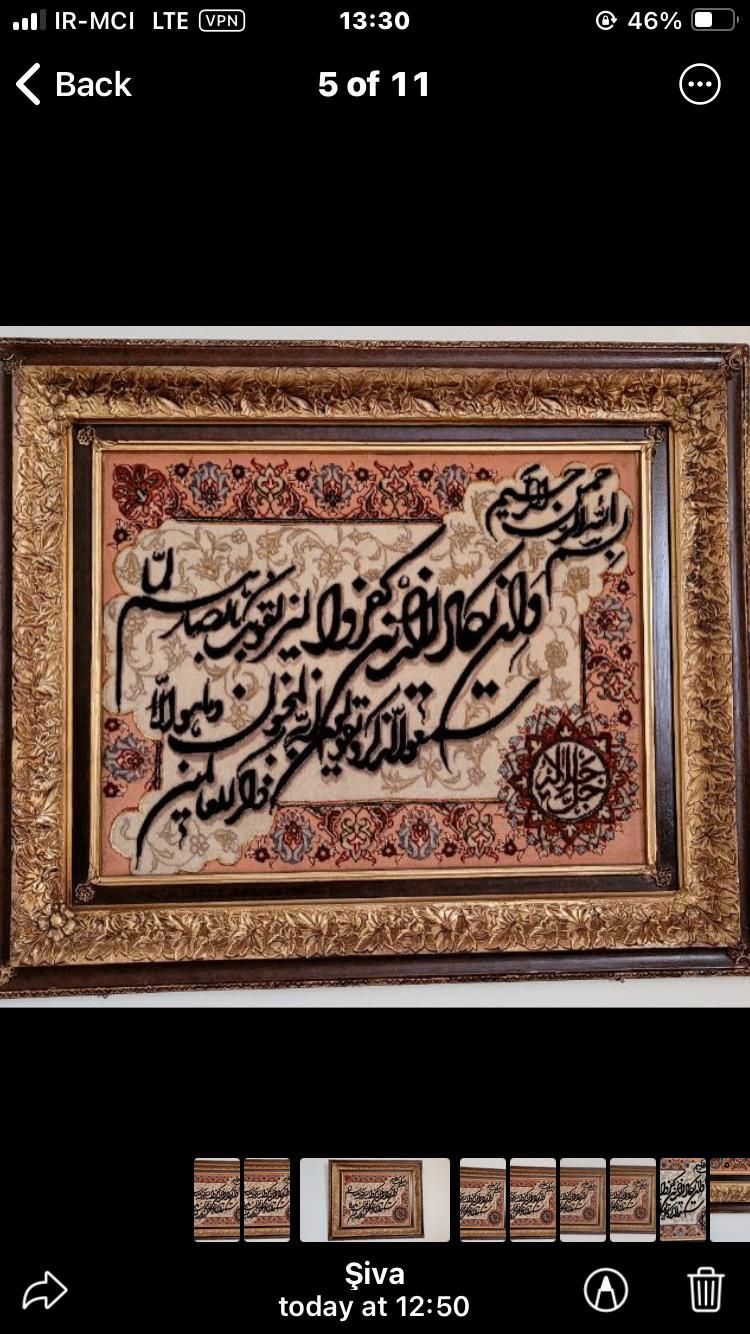 IR-MCI LTE VPN 13:30 46%
Back 5 of 11
بسم الله الرحمن الرحیم
وان یکاد الذین کفروا لیزلقونک بابصارهم لما
سمعوا الذکر و یقولون انه لمجنون و ما هو الا
ذکر للعالمین
جل جلاله
Şiva
today at 12:50